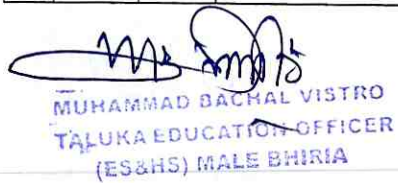 MUHAMMAD BACHAL VISTRO
TALUKA EDUCATION OFFICER
(ES&HS) MALE BHIRIA